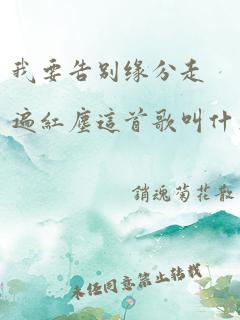 我要告别缘分走
遍紅塵這首歌叫什
銷魂菊花散
未经同意禁止转载